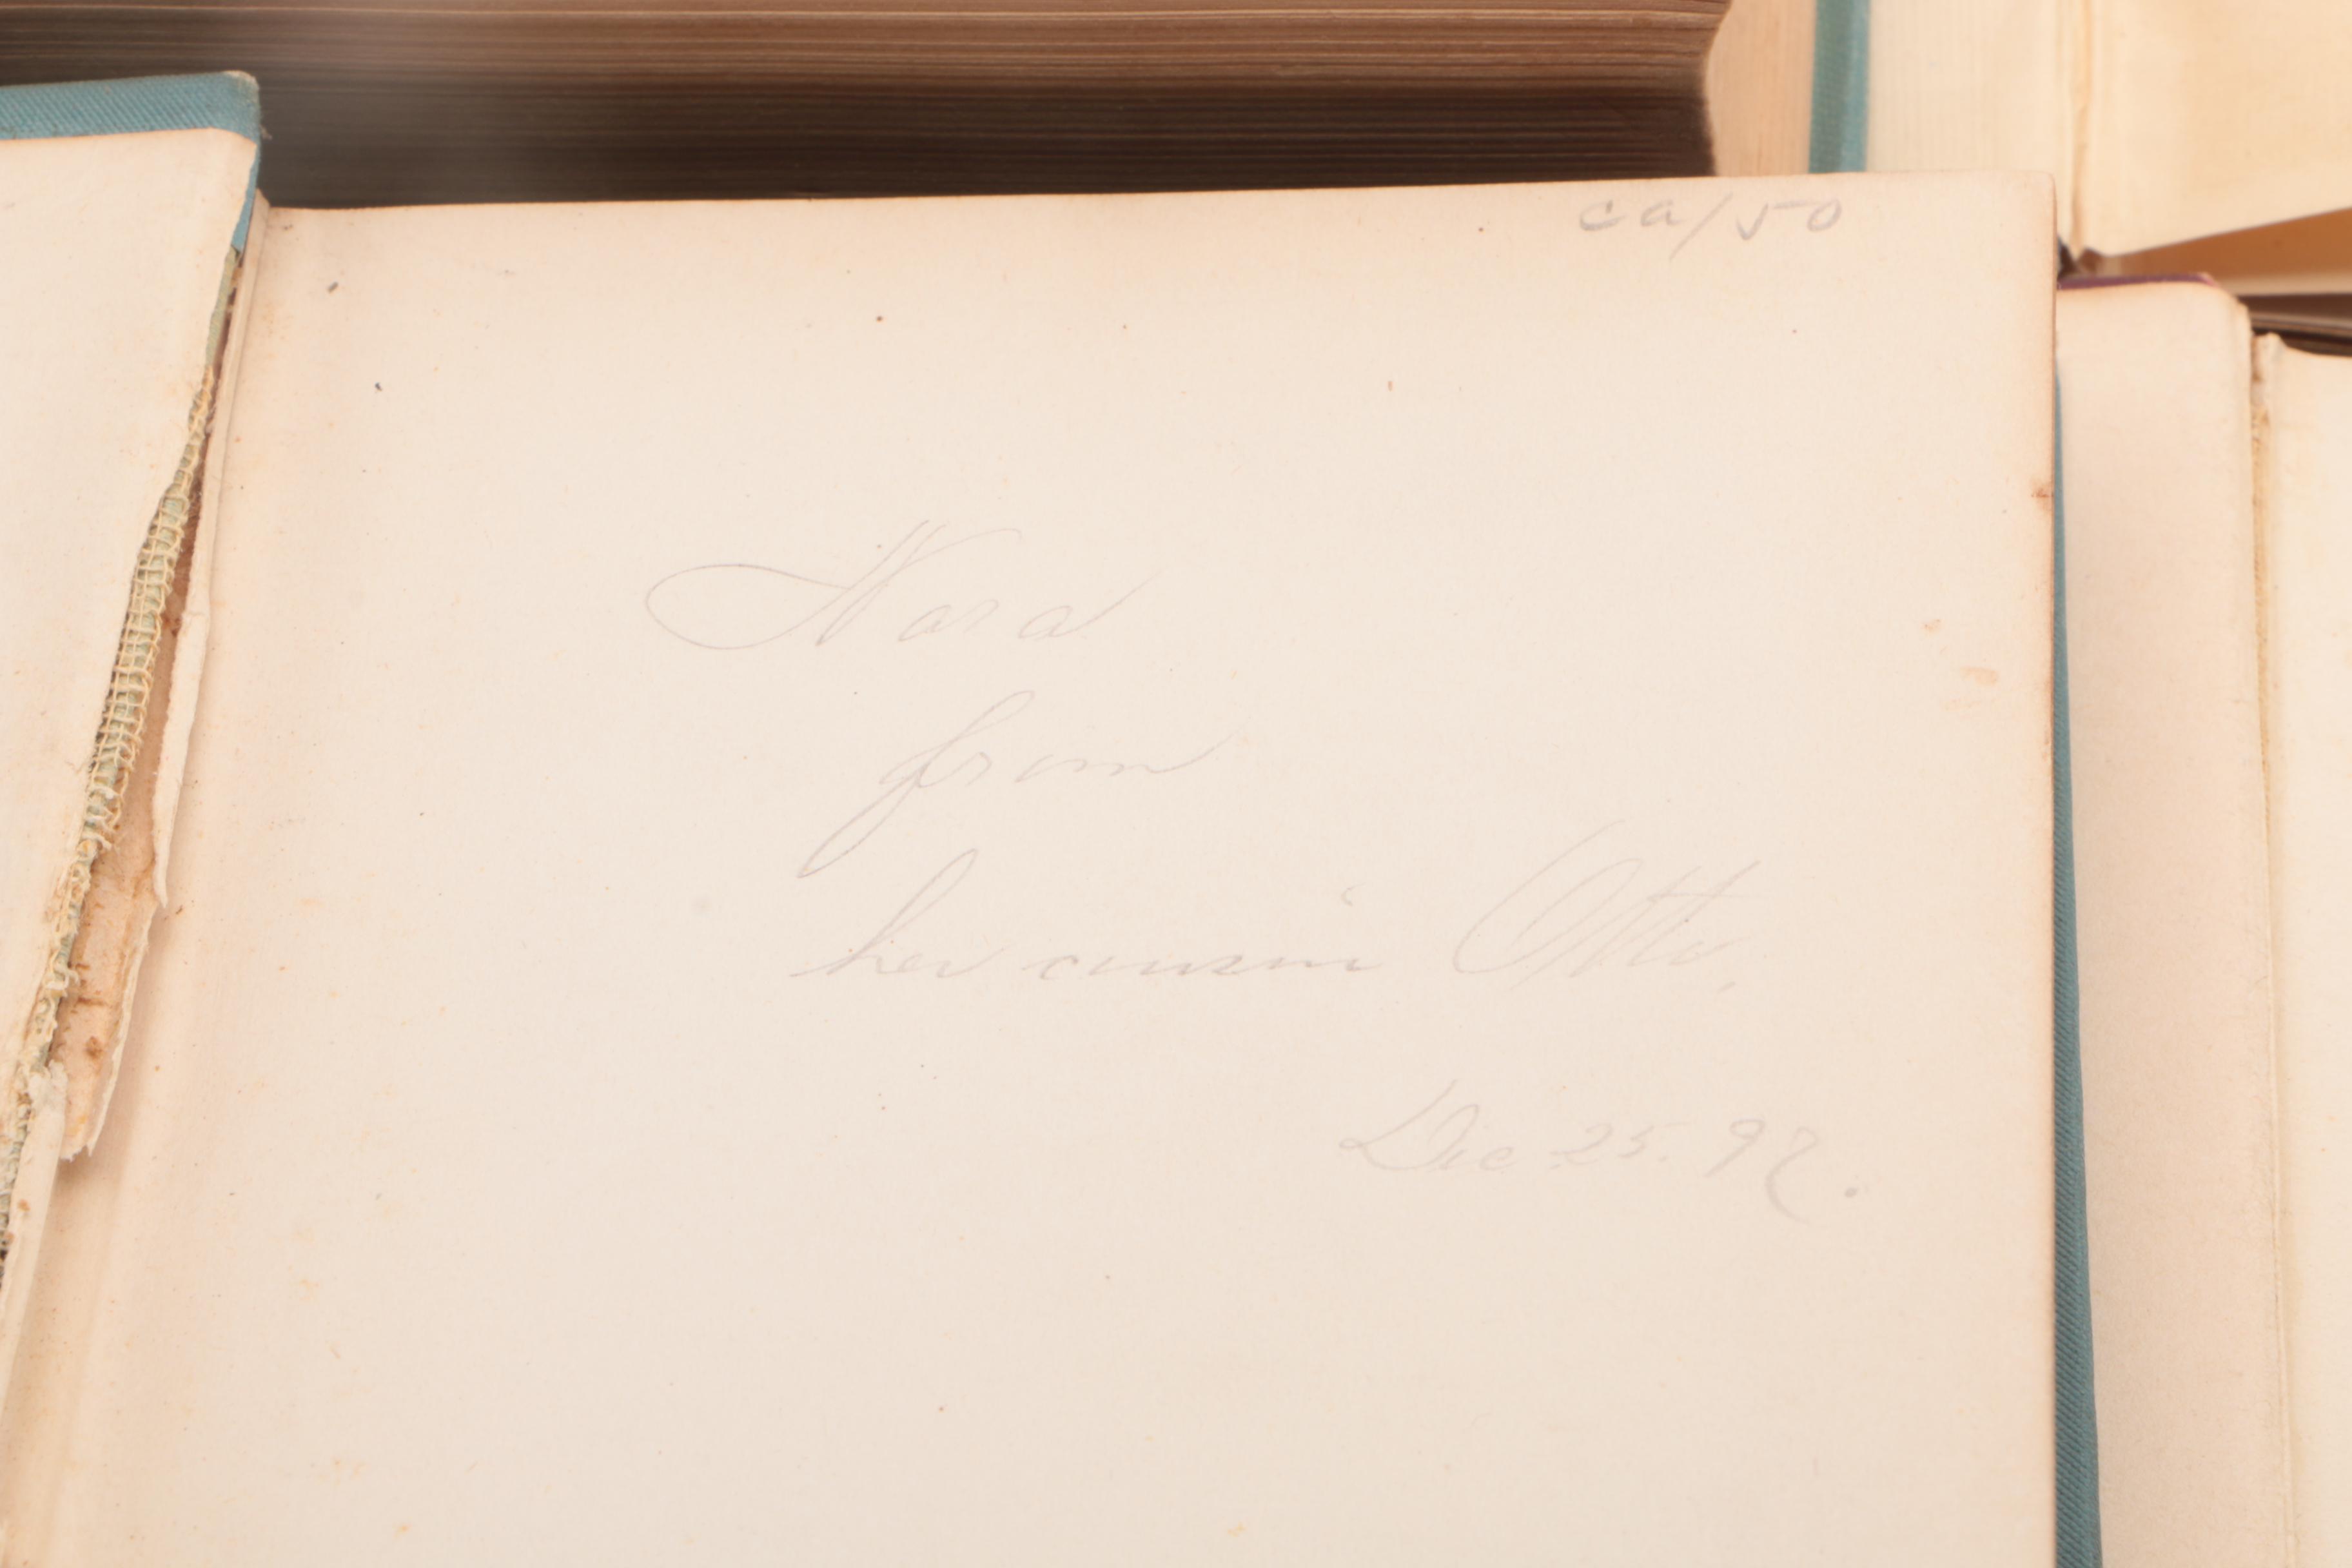 ca/50
Nora
from
her cousin Otto.
Dec 25. 97.